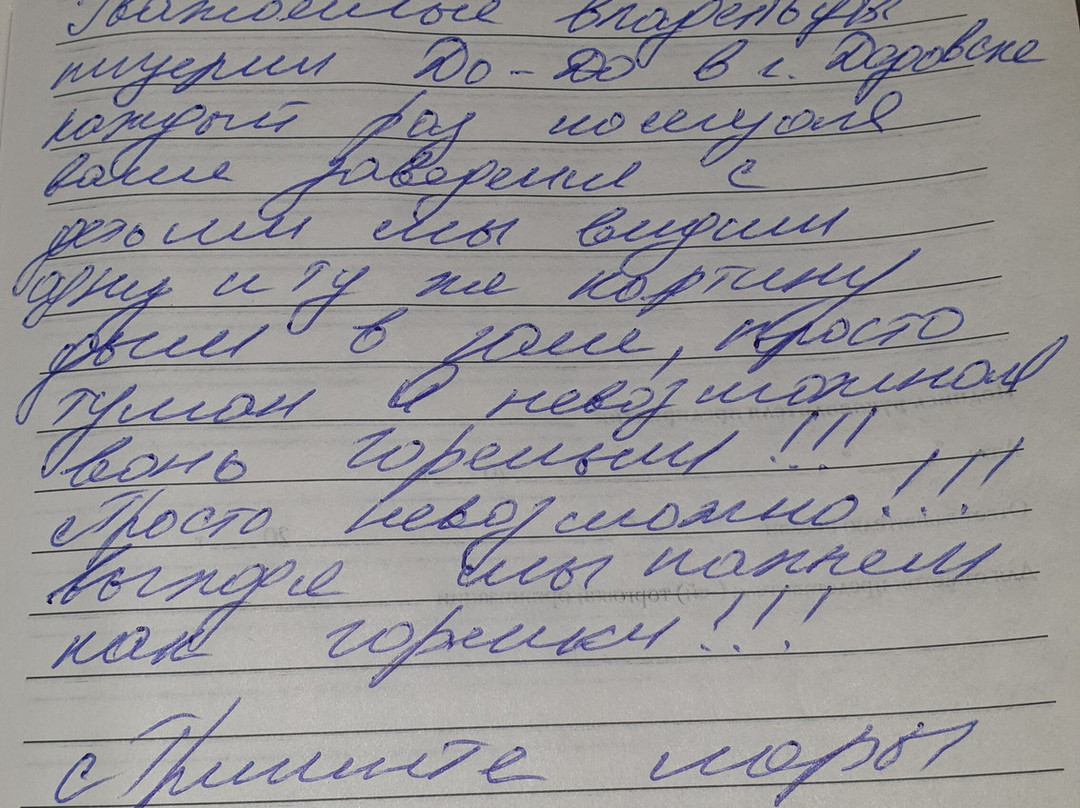 Уважаемые владельцы
пицерии До-До в г. Дедовске
каждый раз посещая
ваше заведения с
детьми мы видим
одну и ту же картину
дым в зале, просто
туман и невозможная
вонь горелым!!!
Просто невозможно!!!
выходя мы пахнем
как горелки!!!
Примите меры